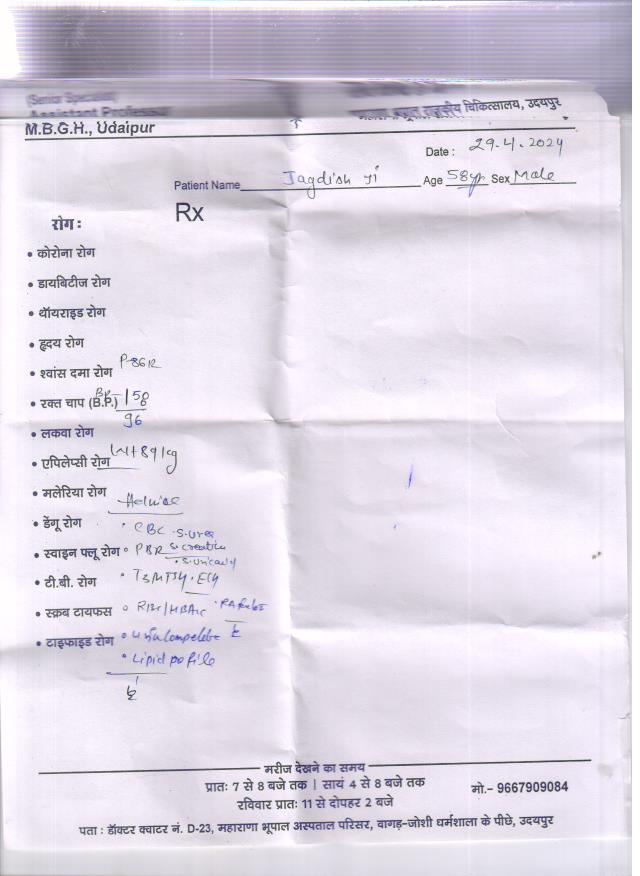 (Senior Specialist)
Assistant Professor
राजकीय चिकित्सालय, उदयपुर
M.B.G.H., Udaipur
Date : 29.4.2024
Patient Name Jagdish Ji Age 58yr Sex Male
Rx
रोग :
• कोरोना रोग
• डायबिटीज रोग
• थॉयराइड रोग
• हृदय रोग
• श्वांस दमा रोग P-86/R
• रक्त चाप (B.P.) BP- 150
96
• लकवा रोग
• एपिलेप्सी रोग Wt 89kg
• मलेरिया रोग
Advice
• डेंगू रोग • CBC • S.urea
• स्वाइन फ्लू रोग • S.creatin
• S.uric acid
• टी.बी. रोग • T3T4TSH • ECG
• स्क्रब टायफस • RBS/HBA1c
• टाइफाइड रोग • Urine complete
• Lipid profile
मरीज देखने का समय
प्रातः 7 से 8 बजे तक | सायं 4 से 8 बजे तक मो.- 9667909084
रविवार प्रातः 11 से दोपहर 2 बजे
पता : डॉक्टर क्वाटर नं. D-23, महाराणा भूपाल अस्पताल परिसर, बागड़-जोशी धर्मशाला के पीछे, उदयपुर